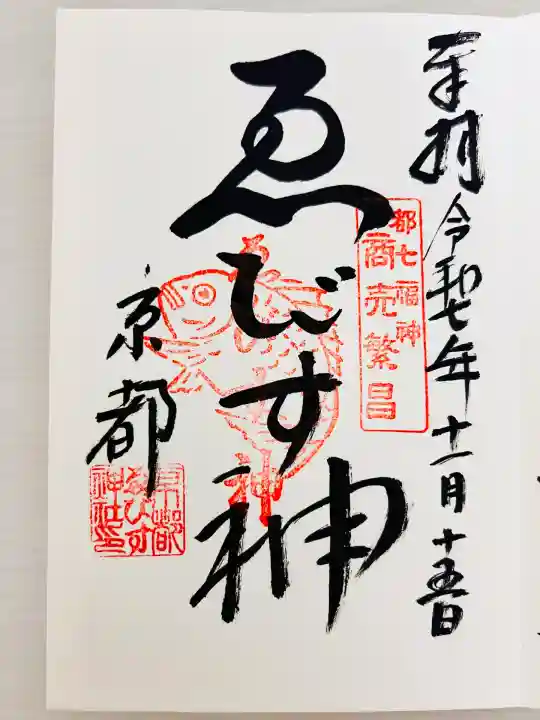 奉拝 令和七年十一月十五日
都七福神
商売繁昌
ゑびす神
神
京都
京都
ゑびす
神社印